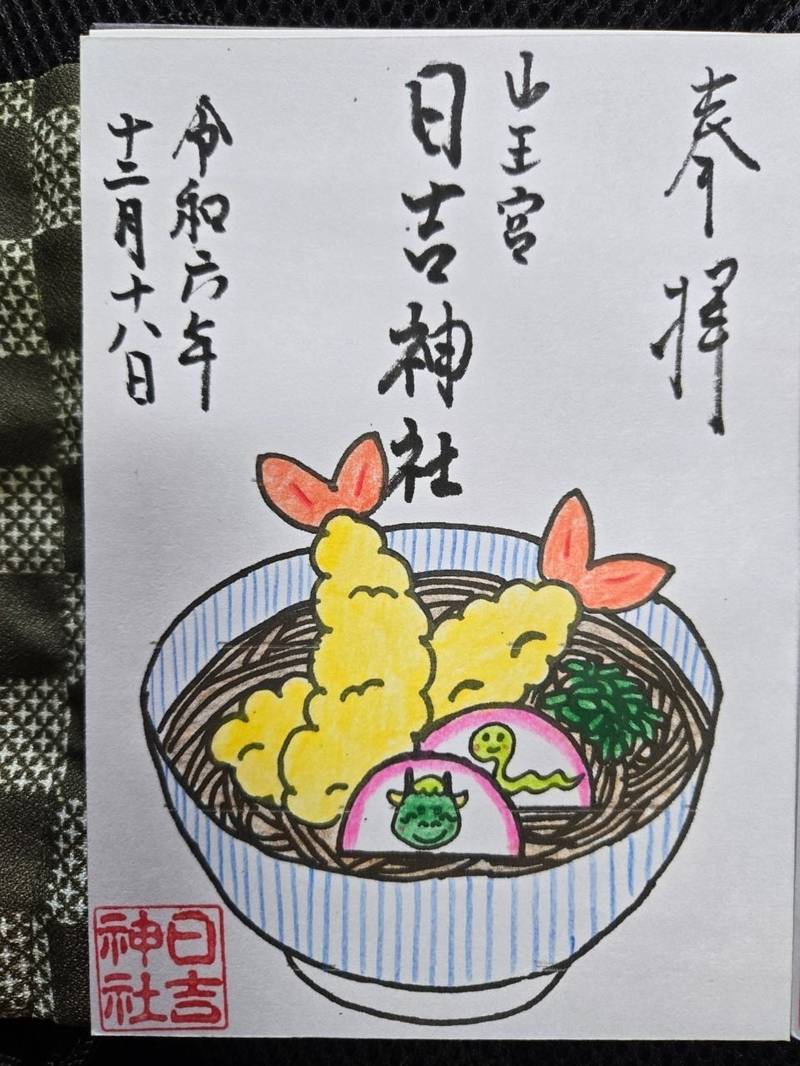 奉拝
山王宮
日吉神社
令和六年
十二月十八日
日吉
神社